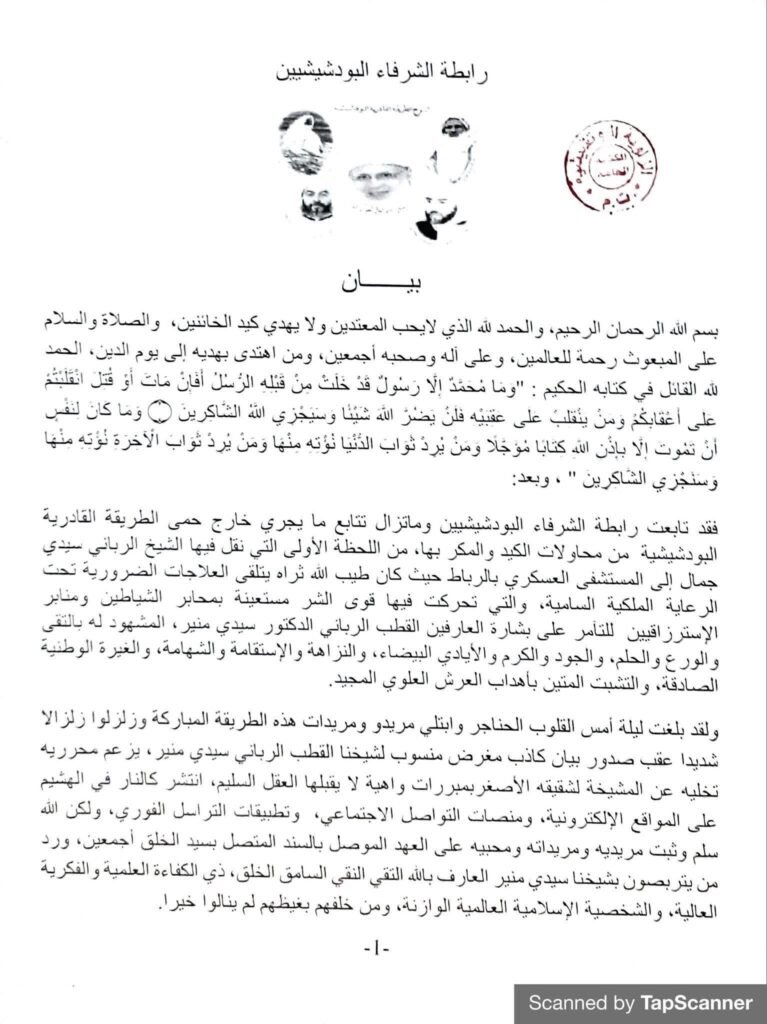 رابطة الشرفاء البودشيشيين
الكتابة
العامة
بيـــــان
بسم الله الرحمان الرحيم، والحمد لله الذي لايحب المعتدين ولا يهدي كيد الخائنين، والصلاة والسلام
على المبعوث رحمة للعالمين، وعلى آله وصحبه أجمعين، ومن اهتدى بهديه إلى يوم الدين، الحمد
لله القائل في كتابه الحكيم : "وَمَا مُحَمَّدٌ إِلَّا رَسُولٌ قَدْ خَلَتْ مِنْ قَبْلِهِ الرُّسُلُ أَفَإِنْ مَاتَ أَوْ قُتِلَ انْقَلَبْتُمْ
عَلَى أَعْقَابِكُمْ وَمَنْ يَنْقَلِبْ عَلَى عَقِبَيْهِ فَلَنْ يَضُرَّ اللَّهَ شَيْئًا وَسَيَجْزِي اللَّهُ الشَّاكِرِينَ ۝ وَمَا كَانَ لِنَفْسٍ
أَنْ تَمُوتَ إِلَّا بِإِذْنِ اللَّهِ كِتَابًا مُؤَجَّلًا وَمَنْ يُرِدْ ثَوَابَ الدُّنْيَا نُؤْتِهِ مِنْهَا وَمَنْ يُرِدْ ثَوَابَ الْآخِرَةِ نُؤْتِهِ مِنْهَا
وَسَنَجْزِي الشَّاكِرِينَ " ، وبعد:
فقد تابعت رابطة الشرفاء البودشيشيين وماتزال تتابع ما يجري خارج حمى الطريقة القادرية
البودشيشية من محاولات الكيد والمكر بها، من اللحظة الأولى التي نقل فيها الشيخ الرباني سيدي
جمال إلى المستشفى العسكري بالرباط حيث كان طيب الله ثراه يتلقى العلاجات الضرورية تحت
الرعاية الملكية السامية، والتي تحركت فيها قوى الشر مستعينة بمحابر الشياطين ومنابر
الإسترزاقيين للتأمر على بشارة العارفين القطب الرباني الدكتور سيدي منير، المشهود له بالتقى
والورع والحلم، والجود والكرم والأيادي البيضاء، والنزاهة والإستقامة والشهامة، والغيرة الوطنية
الصادقة، والتشبت المتين بأهداب العرش العلوي المجيد.
ولقد بلغت ليلة أمس القلوب الحناجر وابتلي مريدو ومريدات هذه الطريقة المباركة وزلزلوا زلزالا
شديدا عقب صدور بيان كاذب مغرض منسوب لشيخنا القطب الرباني سيدي منير، يزعم محرريه
تخليه عن المشيخة لشقيقه الأصغربمبررات واهية لا يقبلها العقل السليم، انتشر كالنار في الهشيم
على المواقع الإلكترونية، ومنصات التواصل الاجتماعي، وتطبيقات التراسل الفوري، ولكن الله
سلم وثبت مريديه ومريداته ومحبيه على العهد الموصل بالسند المتصل بسيد الخلق أجمعين، ورد
من يتربصون بشيخنا سيدي منير العارف بالله التقي النقي السامق الخلق، ذي الكفاءة العلمية والفكرية
العالية، والشخصية الإسلامية العالمية الوازنة، ومن خلفهم بغيظهم لم ينالوا خيرا.
-1-
Scanned by TapScanner